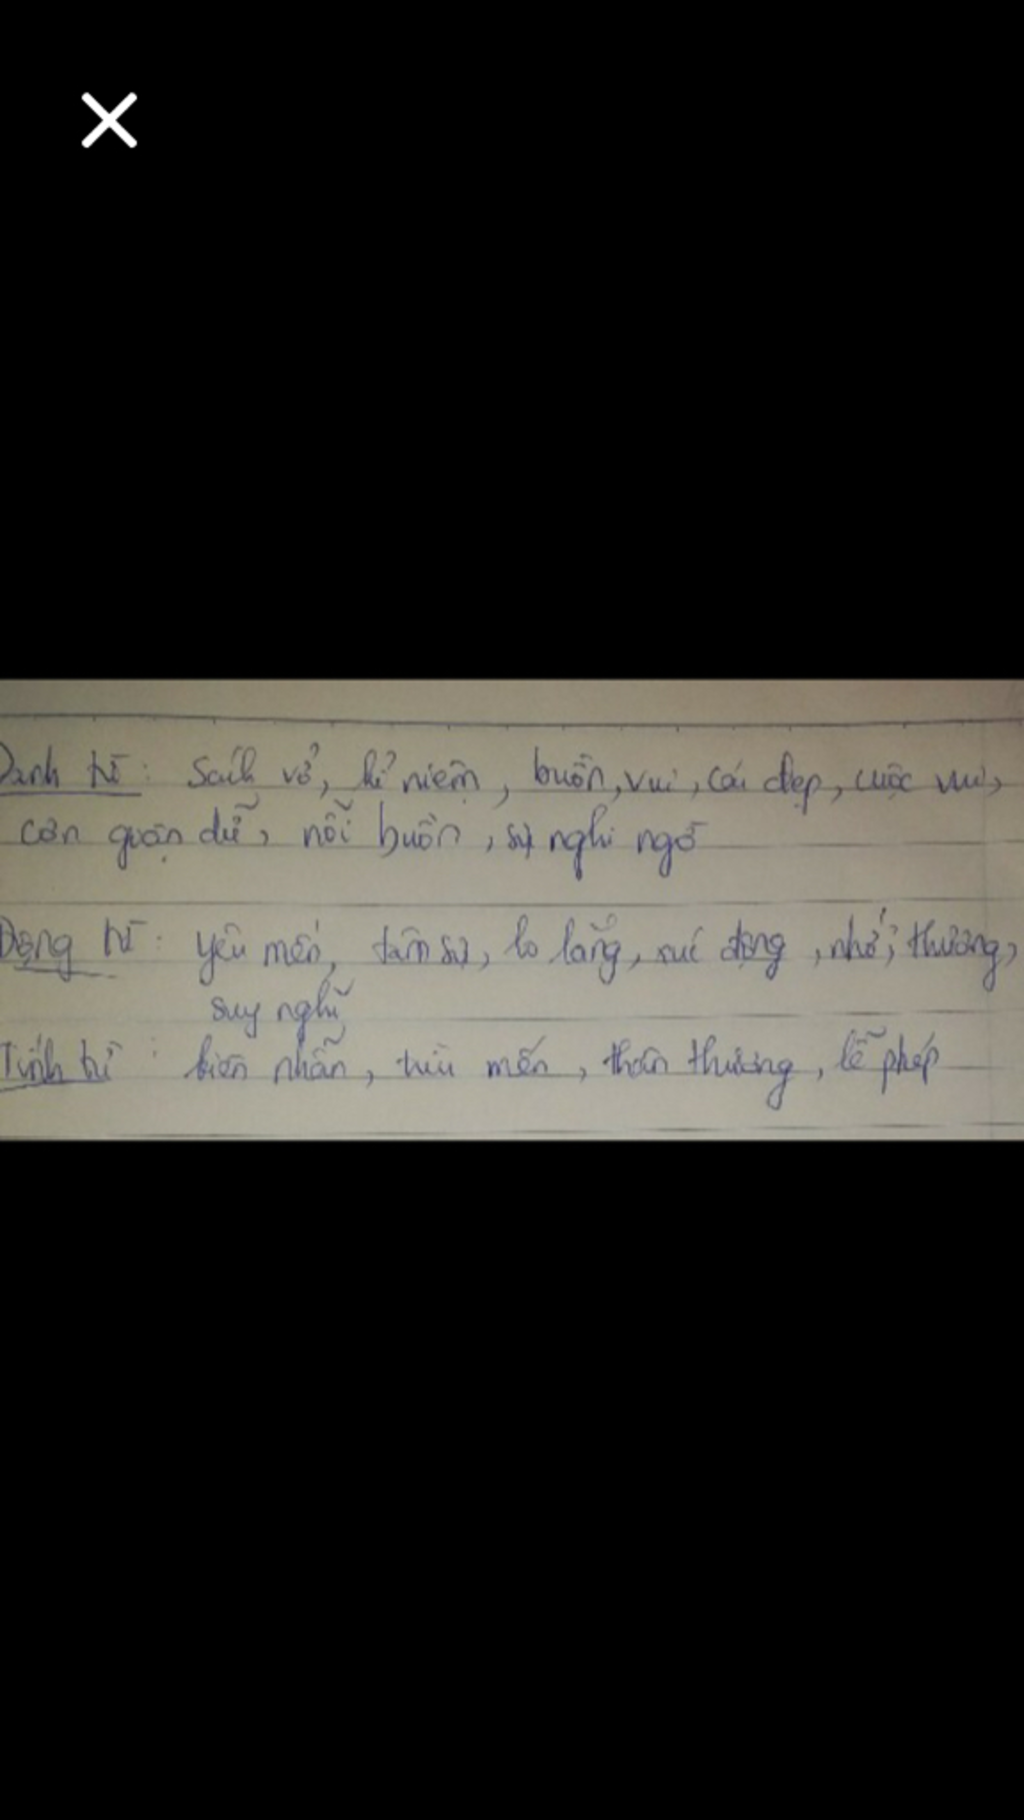 Danh từ: Sách vở, kỉ niệm, buồn, vui, cái đẹp, cuộc vui,
cơn giận dữ, nỗi buồn, sự nghi ngờ
Động từ: yêu mến, tâm sự, lo lắng, xúc động, nhớ, thương,
suy nghĩ
Tính từ: kiên nhẫn, trìu mến, thân thương, lễ phép